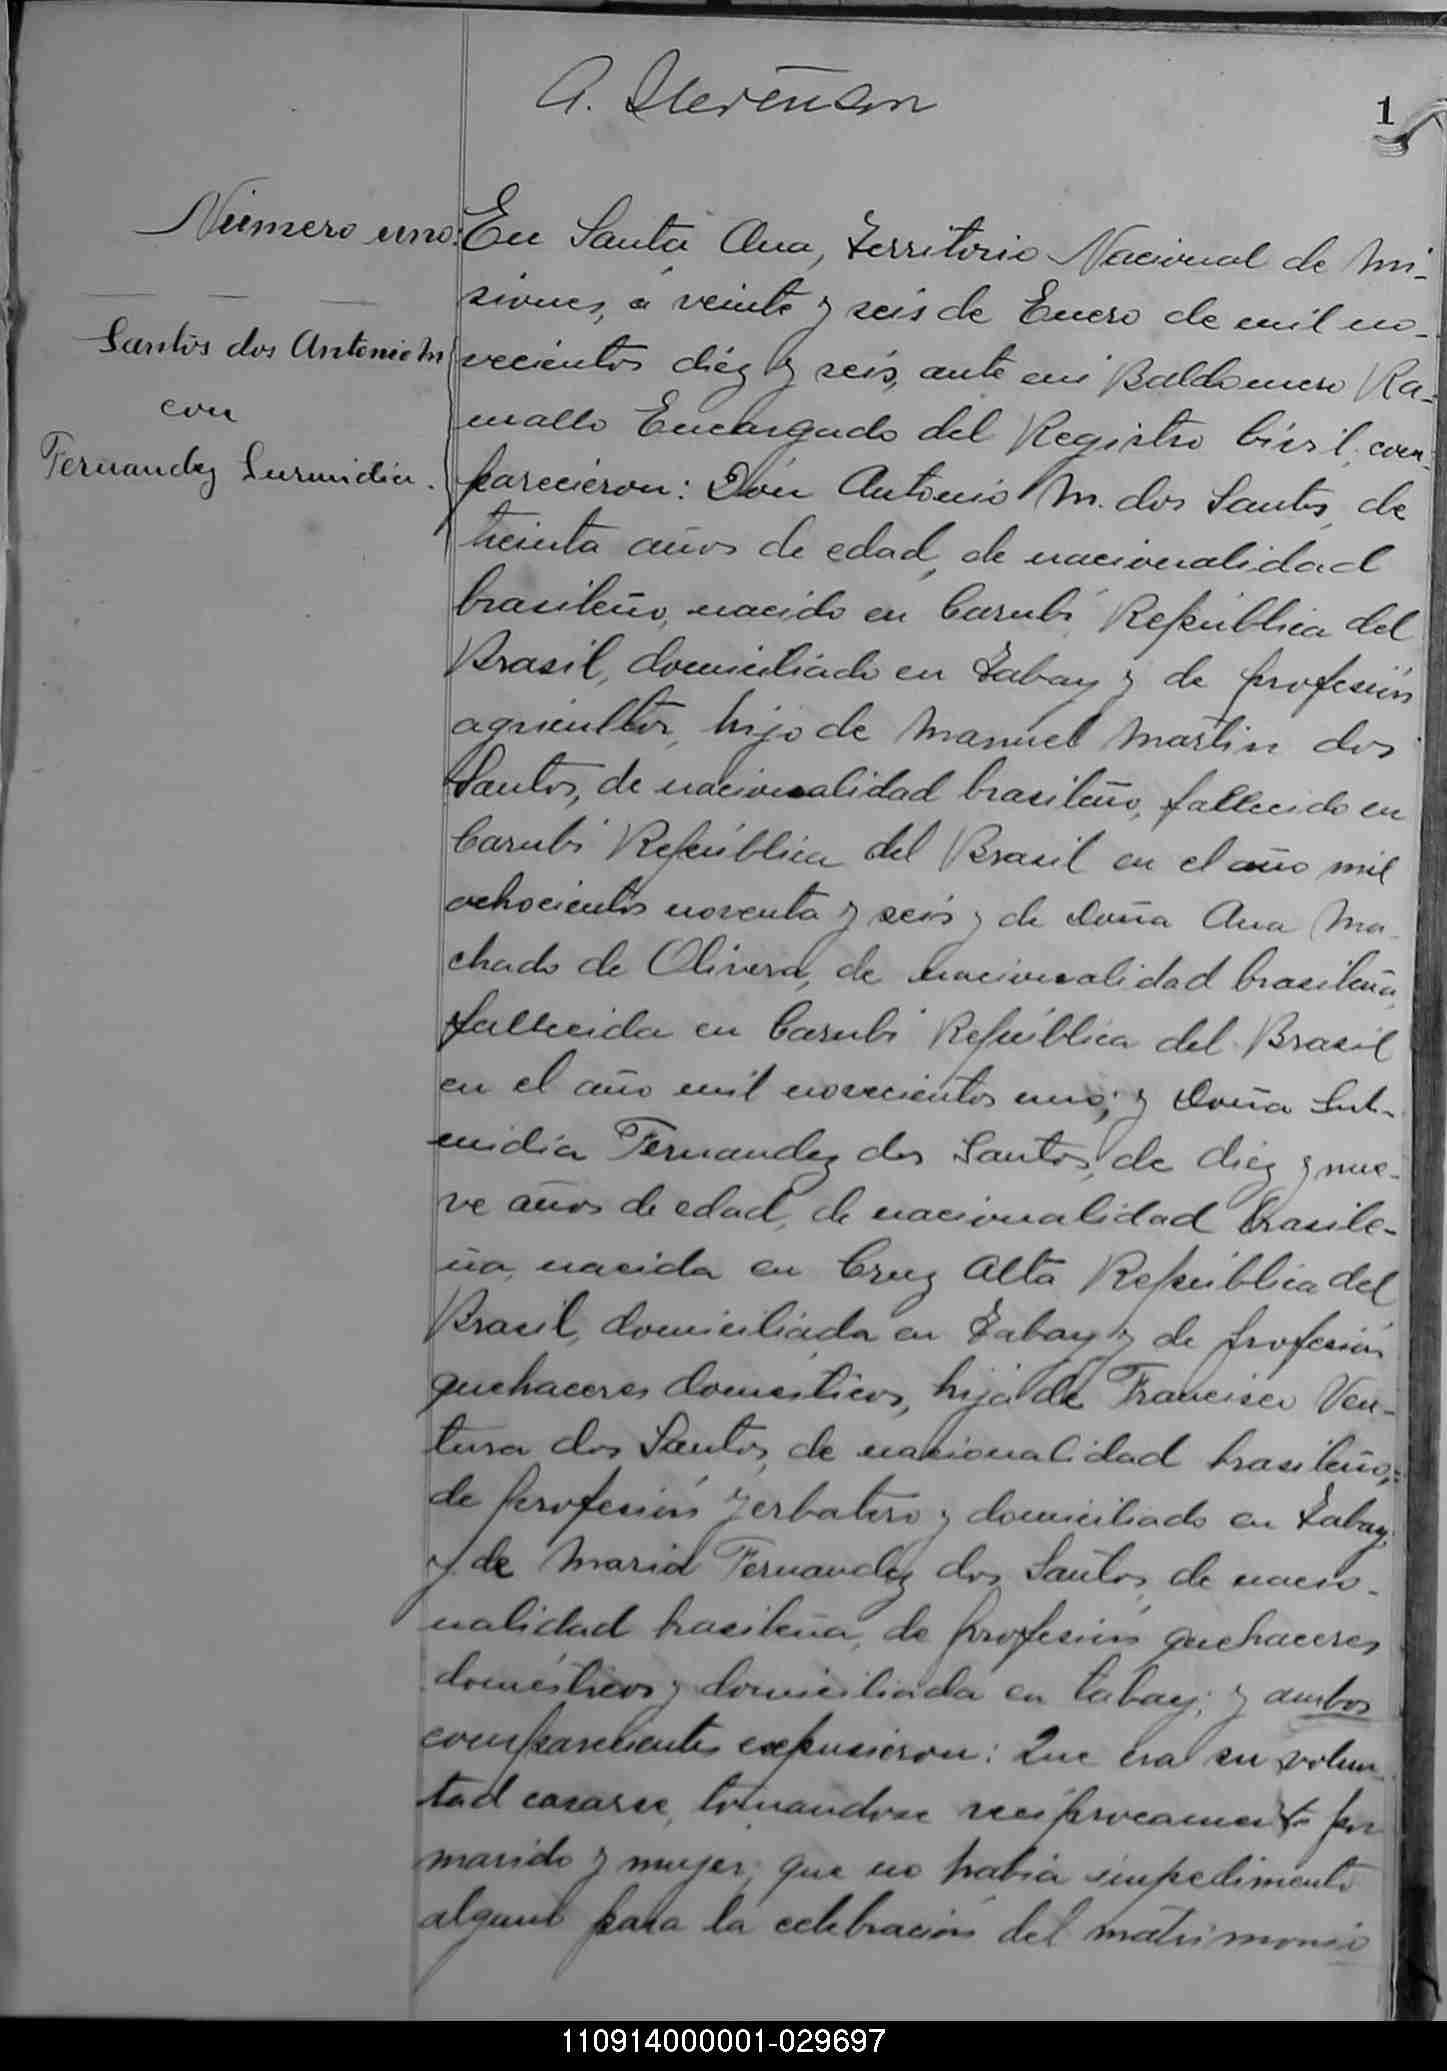 A. Stevenson
1
Número uno:
Santos dos Antonio M
con
Fernandez Lurmidia.
En Santa Ana, Territorio Nacional de Mi-
siones, á veinte y seis de Enero de mil no-
vecientos diéz y seis, ante mi Baldomero Ra-
mallo Encargado del Registro Civil, com-
parecieron: Don Antonio M. dos Santos, de
treinta años de edad, de nacionalidad
brasileño, nacido en Carubi República del
Brasil, domiciliado en Tabay y de profesión
agricultor, hijo de Manuel Martin dos
Santos, de nacionalidad brasileño, fallecido en
Carubi República del Brasil en el año mil
ochocientos noventa y seis y de Doña Ana Ma-
chado de Olivera, de nacionalidad brasileña,
fallecida en Carubi República del Brasil
en el año mil novecientos uno; y Doña
Fernandez dos Santos, de diez y nue-
ve años de edad, de nacionalidad brasile-
ña, nacida en Cruz Alta República del
Brasil, domiciliada en Tabay y de profesión
quehaceres domésticos, hija de Francisco Ven-
tura dos Santos, de nacionalidad brasileño,
de profesión yerbatero y domiciliado en Tabay,
y de Maria Fernandez dos Santos, de nacio-
nalidad brasileña, de profesión quehaceres
domésticos y domiciliada en Tabay; y ambos
comparecientes expusieron: Que era su volun-
tad casarse, tomandose reciprocamente por
marido y mujer, que no habia impedimento
alguno para la celebración del matrimonio
110914000001-029697